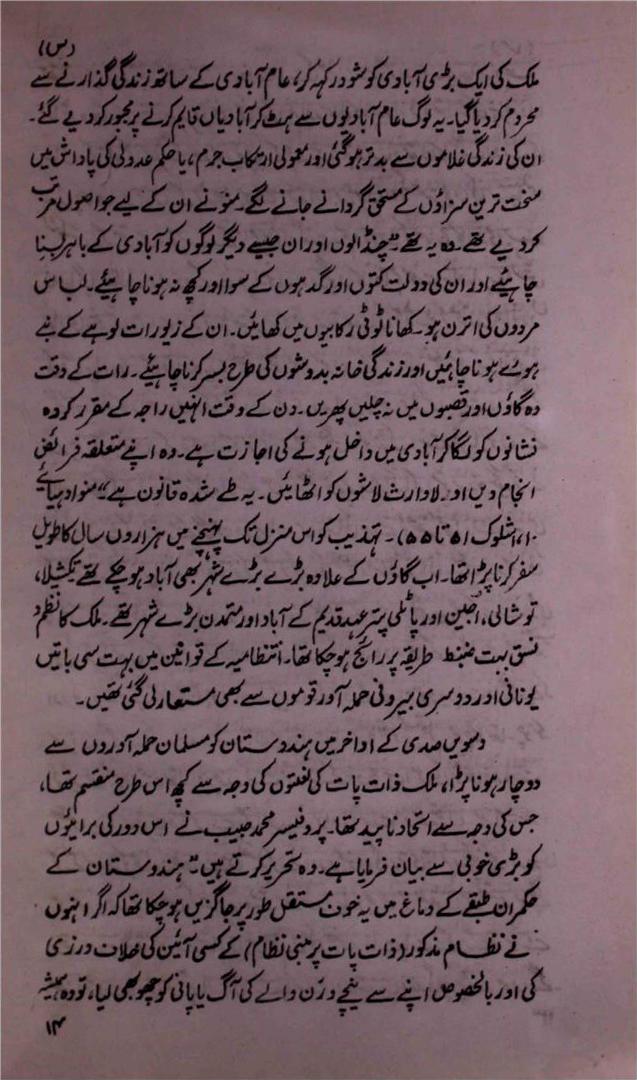 (س)
ملک کی ایک بڑی آبادی کو شودر کہہ کر، عام آبادی کے ساتھ زندگی گذارنے سے
محروم کر دیا گیا۔ یہ لوگ عام آبادیوں سے ہٹ کر آبادیاں قایم کرنے پر مجبور کر دیے گئے۔
ان کی زندگی غلاموں سے بدتر ہو گئی اور معمولی ارتکاب جرم، یا حکم عدولی کی پاداش میں
سخت ترین سزاؤں کے مستحق گردانے جانے لگے۔ منو نے ان کے لیے جو اصول مرتب
کر دیے تھے۔ وہ یہ تھے "چنڈالوں اور ان جیسے دیگر لوگوں کو آبادی کے باہر بسنا
چاہیئے اور ان کی دولت کتوں اور گدہوں کے سوا اور کچھ نہ ہونا چاہیئے۔ لباس
مردوں کی اترن ہو۔ کھانا ٹوٹی رکابیوں میں کھائیں۔ ان کے زیورات لوہے کے بنے
ہوے ہونا چاہئیں اور زندگی خانہ بدوشوں کی طرح بسر کرنا چاہیئے۔ رات کے وقت
وہ گاؤں اور قصبوں میں نہ چلیں پھریں۔ دن کے وقت انہیں راجہ کے مقرر کردہ
نشانوں کو لگا کر آبادی میں داخل ہونے کی اجازت ہے۔ وہ اپنے متعلقہ فرائض
انجام دیں اور لاوارث لاشوں کو اٹھائیں۔ یہ طے شدہ قانون ہے" (منو ادہیائے
۱۰، اشلوک ۵۱ تا ۵۵)۔ تہذیب کو اس منزل تک پہنچنے میں ہزاروں سال کا طویل
سفر کرنا پڑا تھا۔ اب گاؤں کے علاوہ بڑے بڑے شہر بھی آباد ہو چکے تھے ٹیکشیلا،
توشالی، اجین اور پاٹلی پتر عہد قدیم کے آباد اور متمدن بڑے شہر تھے۔ ملک کا نظم و
نسق بہت ضبط طریقہ پر رائج ہو چکا تھا۔ انتظامیہ کے قوانین میں بہت سی باتیں
یونانی اور دوسری بیرونی حملہ آور قوموں سے بھی مستعار لی گئی تھیں۔
دسویں صدی کے اواخر میں ہندوستان کو مسلمان حملہ آوروں سے
دو چار ہونا پڑا، ملک ذات پات کی لعنتوں کی وجہ سے کچھ اس طرح منقسم تھا،
جس کی وجہ سے اتحاد ناپید تھا۔ پروفیسر محمد حبیب نے اس دور کی برائیوں
کو بڑی خوبی سے بیان فرمایا ہے۔ وہ تحریر کرتے ہیں "ہندوستان کے
حکمران طبقے کے دماغ میں یہ خوف مستقل طور پر جاگزیں ہو چکا تھا کہ اگر انہوں
نے نظام مذکور (ذات پات پر مبنی نظام) کے کسی آئین کی خلاف ورزی
کی اور بالخصوص اپنے سے نیچے ورن والے کی آگ یا پانی کو چھو بھی لیا، تو وہ ہمیشہ
۱۴